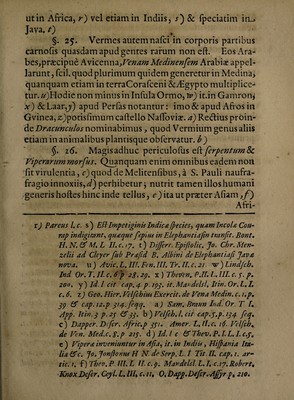 ut in Africa, r) vel etiam in Indiis, s) & speciatim in
Java, t)
§. 25. Vermes autem nasci in corporis partibus
carnosis quasdam apud gentes rarum non est. Eos Ara-
bes, præcipuè Avicenna, Venam Medinensem Arabiæ appel-
larunt, scil. quod plurimum quidem generetur in Medina,
quanquam etiam in terra Corasceni & Ægypto multiplice-
tur. u) Hodie non minus in Insula Ormo, w) it. in Gamron,
x) & Laar, y) apud Persas notantur: imo & apud Afros in
Gvinea, z) potissimum castello Nassoviæ. a) Rectius proin-
de Dracunculos nominabimus, quod Vermium genus aliis
etiam in animalibus plantisque observatur. b)
§. 26. Magis adhuc periculosus est serpentum &
Viperarum morsus. Quanquam enim omnibus eadem non
sit virulentia, c) quod de Melitensibus, à S. Pauli naufra-
fragio innoxiis, d) perhibetur; nutrit tamen illos humani
generis hostes hinc inde tellus, e) ita ut præter Asiam, f)
Afri-
r) Parens l. c. s) Est Impetiginis Indica species, quam Incola Cou-
rap indigitant, quaque sæpius in Elephantiasin transit. Bont.
H. N. & M. I. II. c. 17. t) Differ. Epistolic. Jo. Chr. Men-
zelii ad Cleyer sub Præsid B. Albini de Elephantiasi Java
nova. u) Avic. L. III. Fen. III. Tr. II. c. 21. w) Lindsch.
Ind Or. T. II. c. 6 p 28. 29. x) Theven. P. II. L. III. c. 5. p.
200. y) Id. l cit cap. 4. p. 193. it. Mandelsl. Itin. Or. L. I.
c. 6. z) Geo. Hier. Velschius Exercit. de Vena Medin. c. 1. p.
39 & cap. 12. p. 314. seqq. a) Sam. Brun Ind Or. T. I.
App. Itin. 3. p. 25 & 33. b) Velsch. l. cit cap. 5. p. 134. seq.
c) Dapper. Descr. Afric. p 351. Amer. L. II. c. 16. Velsch.
de Ven. Med. c. 5. p 215. d) Id. l c & Thev. P. I. L. I. c. 5.
e) Vipera inveniuntur in Asia, it. in Indiis, Hispania Ita-
lia & c. Jo. Jonstonus H N. de Serp. L. I Tit II. cap. 1. ar-
tic. 1. f) Thev. P. III. L II c. 9. Mandelsl. L. I. c. 17. Robert.
Knox Descr. Ceyl. L. III. c. 11. O. Dapp. Descr. Assyr p. 210.